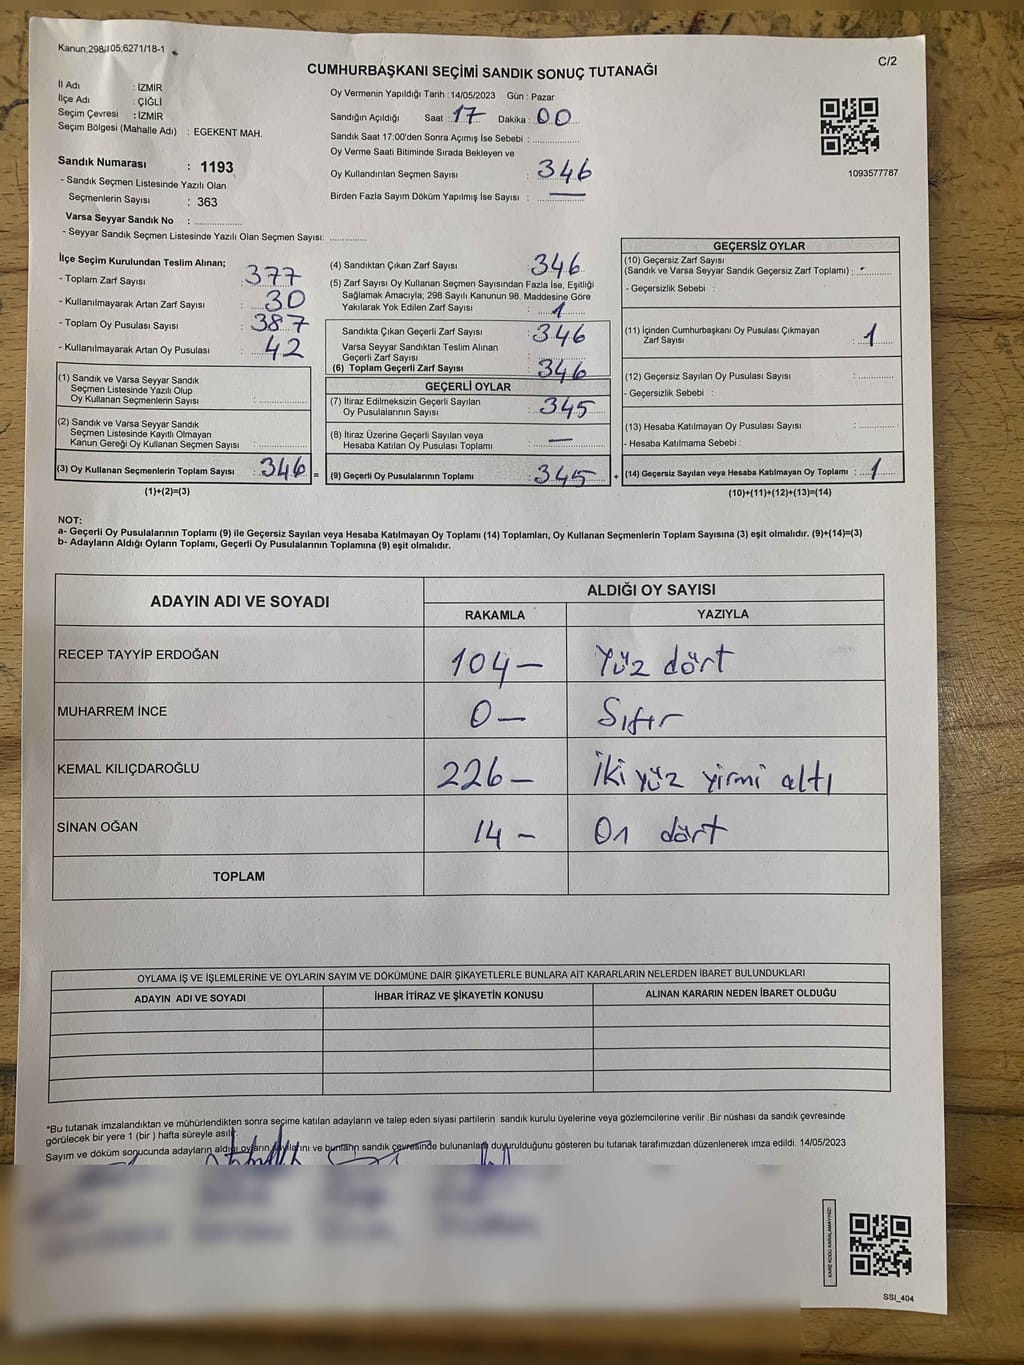 Kanun;298/105;6271/18-1
C/2
CUMHURBAŞKANI SEÇİMİ SANDIK SONUÇ TUTANAĞI
İl Adı : İZMİR
İlçe Adı : ÇİĞLİ
Seçim Çevresi : İZMİR
Seçim Bölgesi (Mahalle Adı) : EGEKENT MAH.
Sandık Numarası : 1193
- Sandık Seçmen Listesinde Yazılı Olan
Seçmenlerin Sayısı : 363
Varsa Seyyar Sandık No :
- Seyyar Sandık Seçmen Listesinde Yazılı Olan Seçmen Sayısı:
Oy Vermenin Yapıldığı Tarih : 14/05/2023 Gün : Pazar
Sandığın Açıldığı Saat : 17 Dakika : 00
Sandık Saat 17:00'den Sonra Açımış İse Sebebi :
Oy Verme Saati Bitiminde Sırada Bekleyen ve
Oy Kullandırılan Seçmen Sayısı : 346
Birden Fazla Sayım Döküm Yapılmış İse Sayısı : —
1093577787
İlçe Seçim Kurulundan Teslim Alınan;
- Toplam Zarf Sayısı : 377
- Kullanılmayarak Artan Zarf Sayısı : 30
- Toplam Oy Pusulası Sayısı : 387
- Kullanılmayarak Artan Oy Pusulası : 42
(1) Sandık ve Varsa Seyyar Sandık
Seçmen Listesinde Yazılı Olup
Oy Kullanan Seçmenlerin Sayısı :
(2) Sandık ve Varsa Seyyar Sandık
Seçmen Listesinde Kayıtlı Olmayan
Kanun Gereği Oy Kullanan Seçmen Sayısı :
(3) Oy Kullanan Seçmenlerin Toplam Sayısı : 346 =
(1)+(2)=(3)
(4) Sandıktan Çıkan Zarf Sayısı : 346
(5) Zarf Sayısı Oy Kullanan Seçmen Sayısından Fazla İse, Eşitliği
Sağlamak Amacıyla; 298 Sayılı Kanunun 98. Maddesine Göre
Yakılarak Yok Edilen Zarf Sayısı : 1
Sandıkta Çıkan Geçerli Zarf Sayısı : 346
Varsa Seyyar Sandıktan Teslim Alınan
Geçerli Zarf Sayısı :
(6) Toplam Geçerli Zarf Sayısı : 346
GEÇERLİ OYLAR
(7) İtiraz Edilmeksizin Geçerli Sayılan
Oy Pusulalarının Sayısı : 345
(8) İtiraz Üzerine Geçerli Sayılan veya
Hesaba Katılan Oy Pusulası Toplamı : —
(9) Geçerli Oy Pusulalarının Toplamı : 345 +
GEÇERSİZ OYLAR
(10) Geçersiz Zarf Sayısı
(Sandık ve Varsa Seyyar Sandık Geçersiz Zarf Toplamı) :
- Geçersizlik Sebebi :
(11) İçinden Cumhurbaşkanı Oy Pusulası Çıkmayan
Zarf Sayısı : 1
(12) Geçersiz Sayılan Oy Pusulası Sayısı :
- Geçersizlik Sebebi :
(13) Hesaba Katılmayan Oy Pusulası Sayısı :
- Hesaba Katılmama Sebebi :
(14) Geçersiz Sayılan veya Hesaba Katılmayan Oy Toplamı : 1
(10)+(11)+(12)+(13)=(14)
NOT:
a- Geçerli Oy Pusulalarının Toplamı (9) ile Geçersiz Sayılan veya Hesaba Katılmayan Oy Toplamı (14) Toplamları, Oy Kullanan Seçmenlerin Toplam Sayısına (3) eşit olmalıdır. (9)+(14)=(3)
b- Adayların Aldığı Oyların Toplamı, Geçerli Oy Pusulalarının Toplamına (9) eşit olmalıdır.
ADAYIN ADI VE SOYADI
ALDIĞI OY SAYISI
RAKAMLA YAZIYLA
RECEP TAYYİP ERDOĞAN 104- Yüz dört
MUHARREM İNCE 0- Sıfır
KEMAL KILIÇDAROĞLU 226- İki yüz yirmi altı
SİNAN OĞAN 14- On dört
TOPLAM
OYLAMA İŞ VE İŞLEMLERİNE VE OYLARIN SAYIM VE DÖKÜMÜNE DAİR ŞİKAYETLERLE BUNLARA AİT KARARLARIN NELERDEN İBARET BULUNDUKLARI
ADAYIN ADI VE SOYADI İHBAR İTİRAZ VE ŞİKAYETİN KONUSU ALINAN KARARIN NEDEN İBARET OLDUĞU
*Bu tutanak imzalandıktan ve mühürlendikten sonra seçime katılan adayların ve talep eden siyasi partilerin sandık kurulu üyelerine veya gözlemcilerine verilir .Bir nüshası da sandık çevresinde
görülecek bir yere 1 (bir ) hafta süreyle asılır.
Sayım ve döküm sonucunda adayların aldığı oyların sayılarını ve bunların sandık çevresinde bulunanlara duyurulduğunu gösteren bu tutanak tarafımızdan düzenlenerek imza edildi. 14/05/2023
KARE KODU KARALAMAYINIZ!
SSI_404